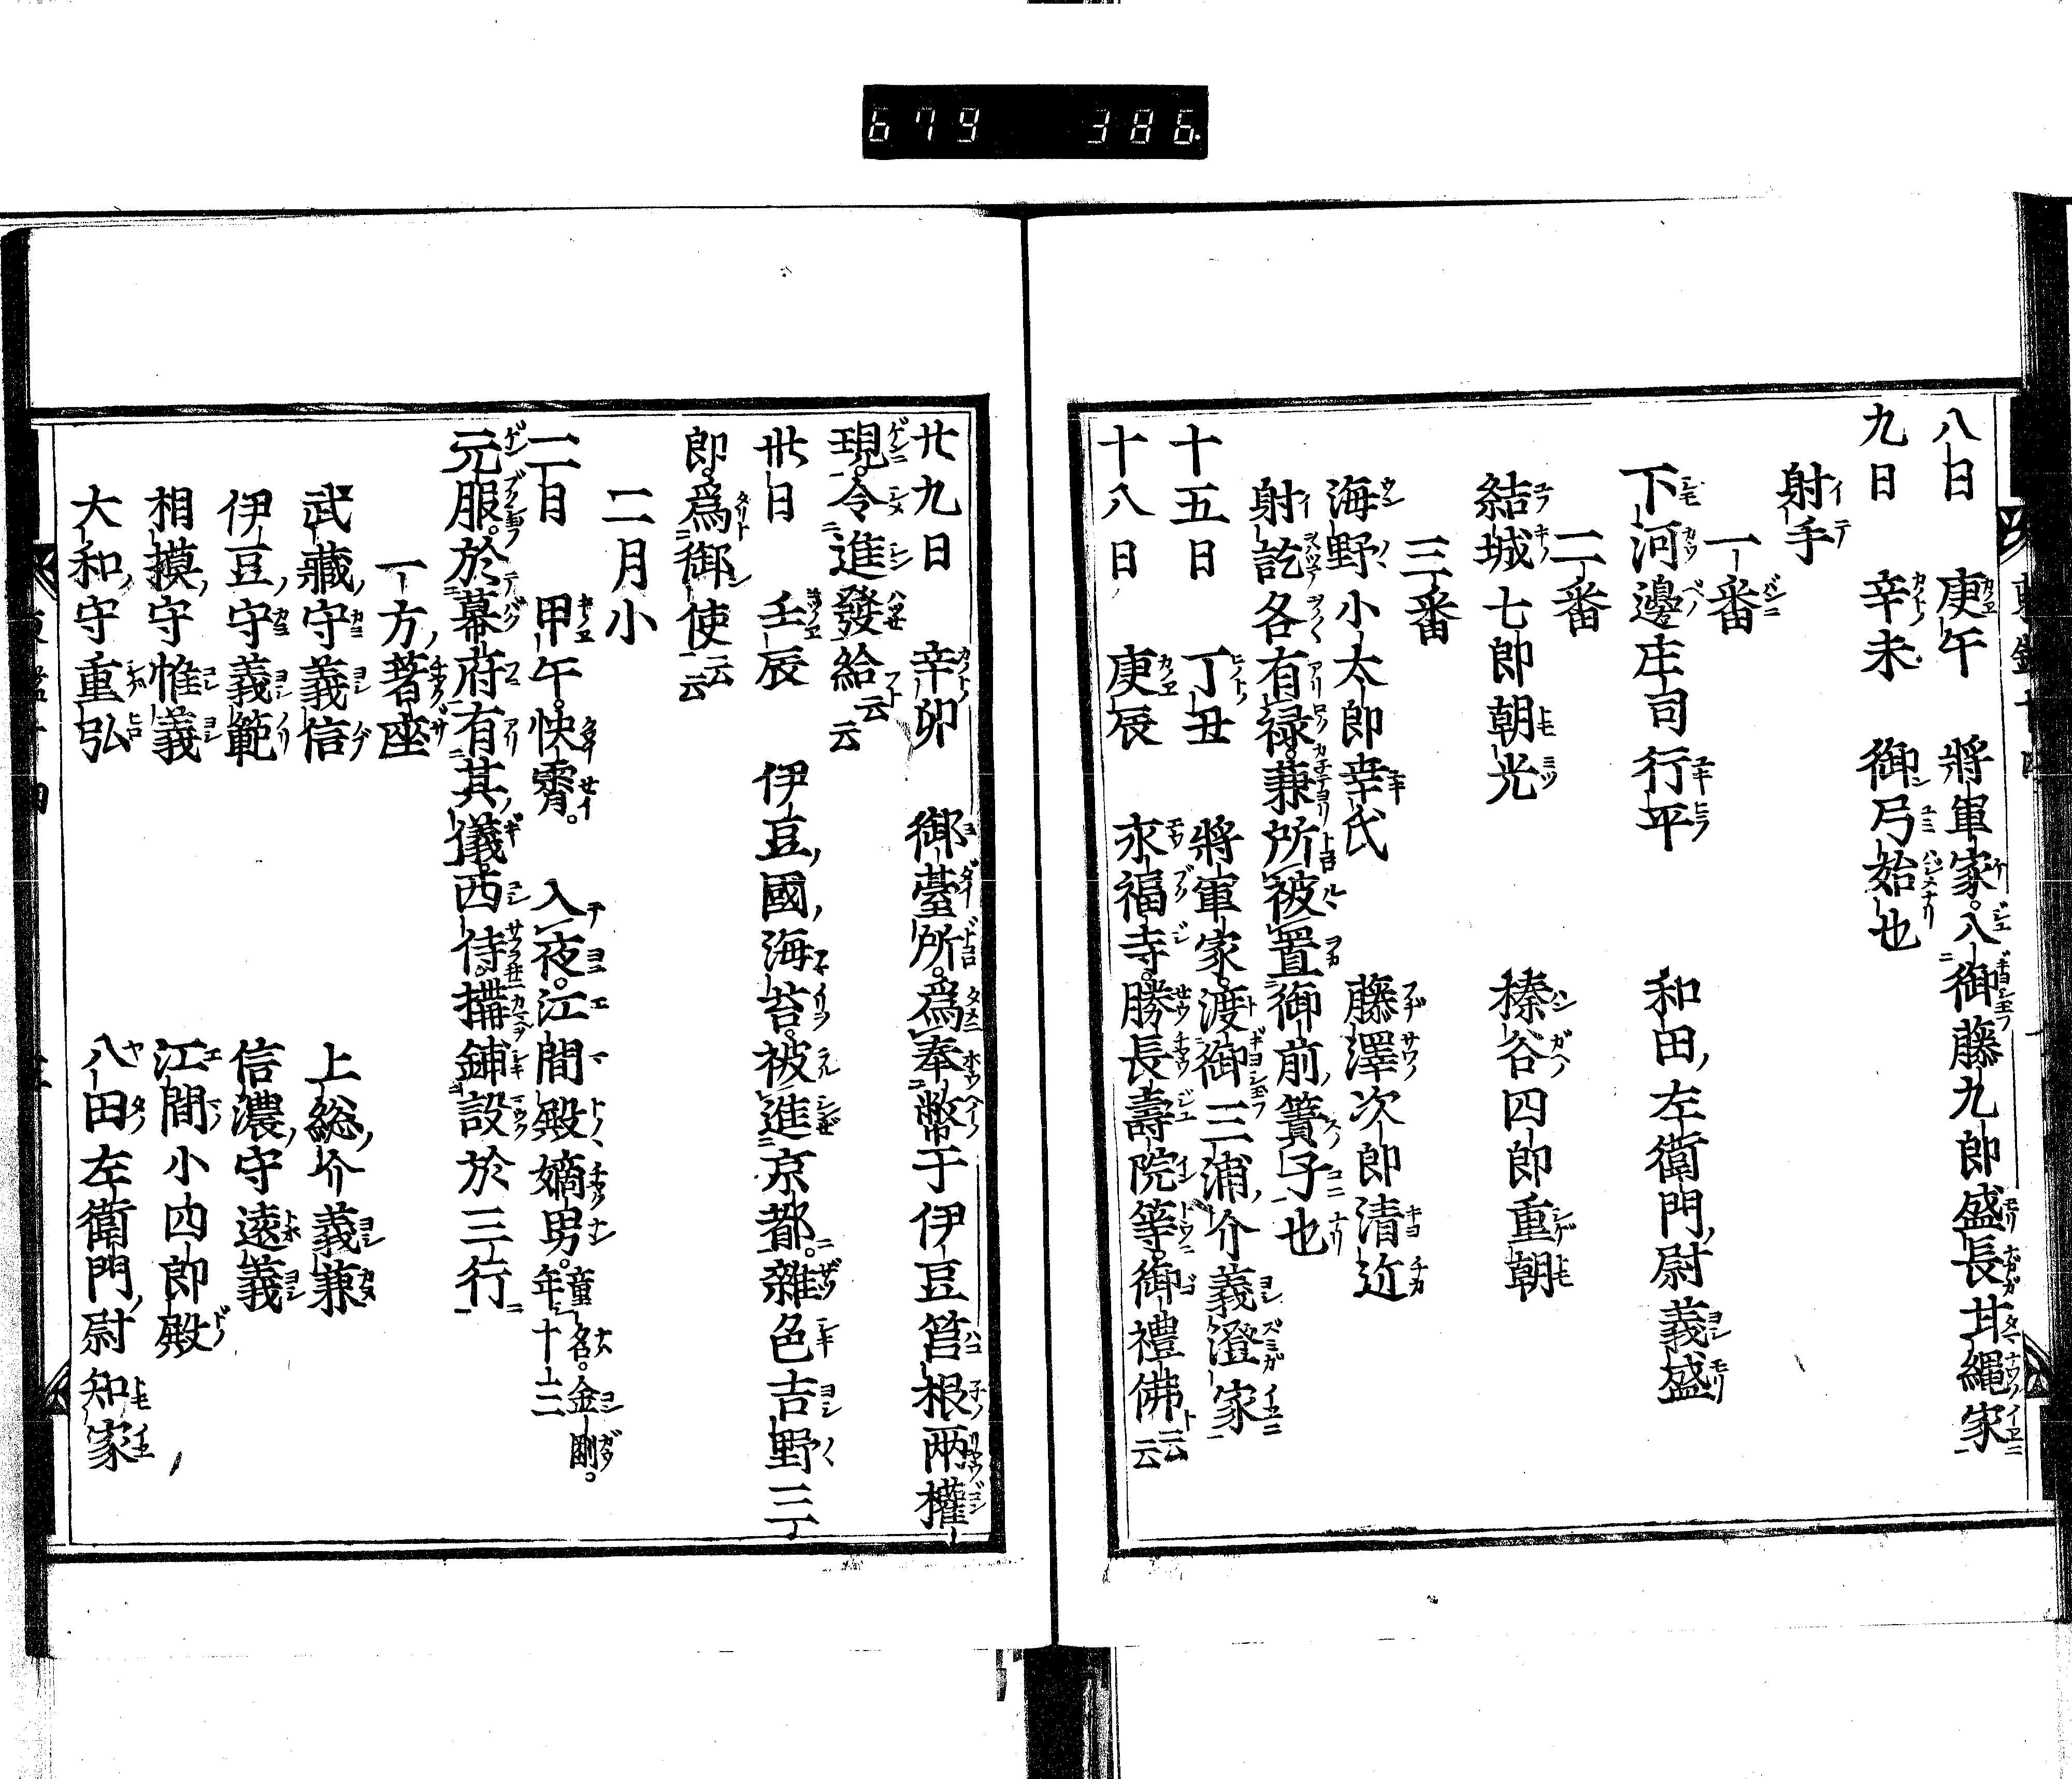 679 386
八日 庚午 將軍家。入御藤九郎盛長甘繩家
九日 辛未 御弓始也
射手
一番
下河邊庄司行平 和田左衛門尉義盛
二番
結城七郎朝光 榛谷四郎重朝
三番
海野小太郎幸氏 藤澤次郎清近
射訖各有禄。兼所被置御前簀子也
十五日 丁丑 將軍家。渡御三浦介義澄家
十八日 庚辰 永福寺。勝長壽院等。御禮佛云云
廿九日 辛卯 御臺所。爲奉幣于伊豆筥根兩權
現。令進發給云云
卅日 壬辰 伊豆國海苔。被進京都。雜色吉野三
郎。爲御使云云
二月小
二日 甲午。快霽。 入夜。江間殿嫡男。童名。金剛。年十三
元服。於幕府有其儀。西侍。搆鋪設於三行
一方著座
武藏守義信 上総介義兼
伊豆守義範 信濃守遠義
相摸守惟義 江間小四郎殿
大和守重弘 八田左衛門尉知家